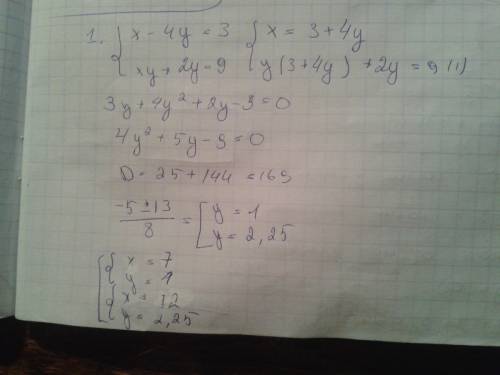 1. { x - 4y = 3 { x = 3 + 4y
xy + 2y = 9 y(3+4y) + 2y = 9 (1)
3y + 4y² + 2y - 9 = 0
4y² + 5y - 9 = 0
D = 25 + 144 = 169
-5 ± 13 / 8 = [ y = 1
y = 2,25
[ { x = 7
y = 1
{ x = 12
y = 2,25